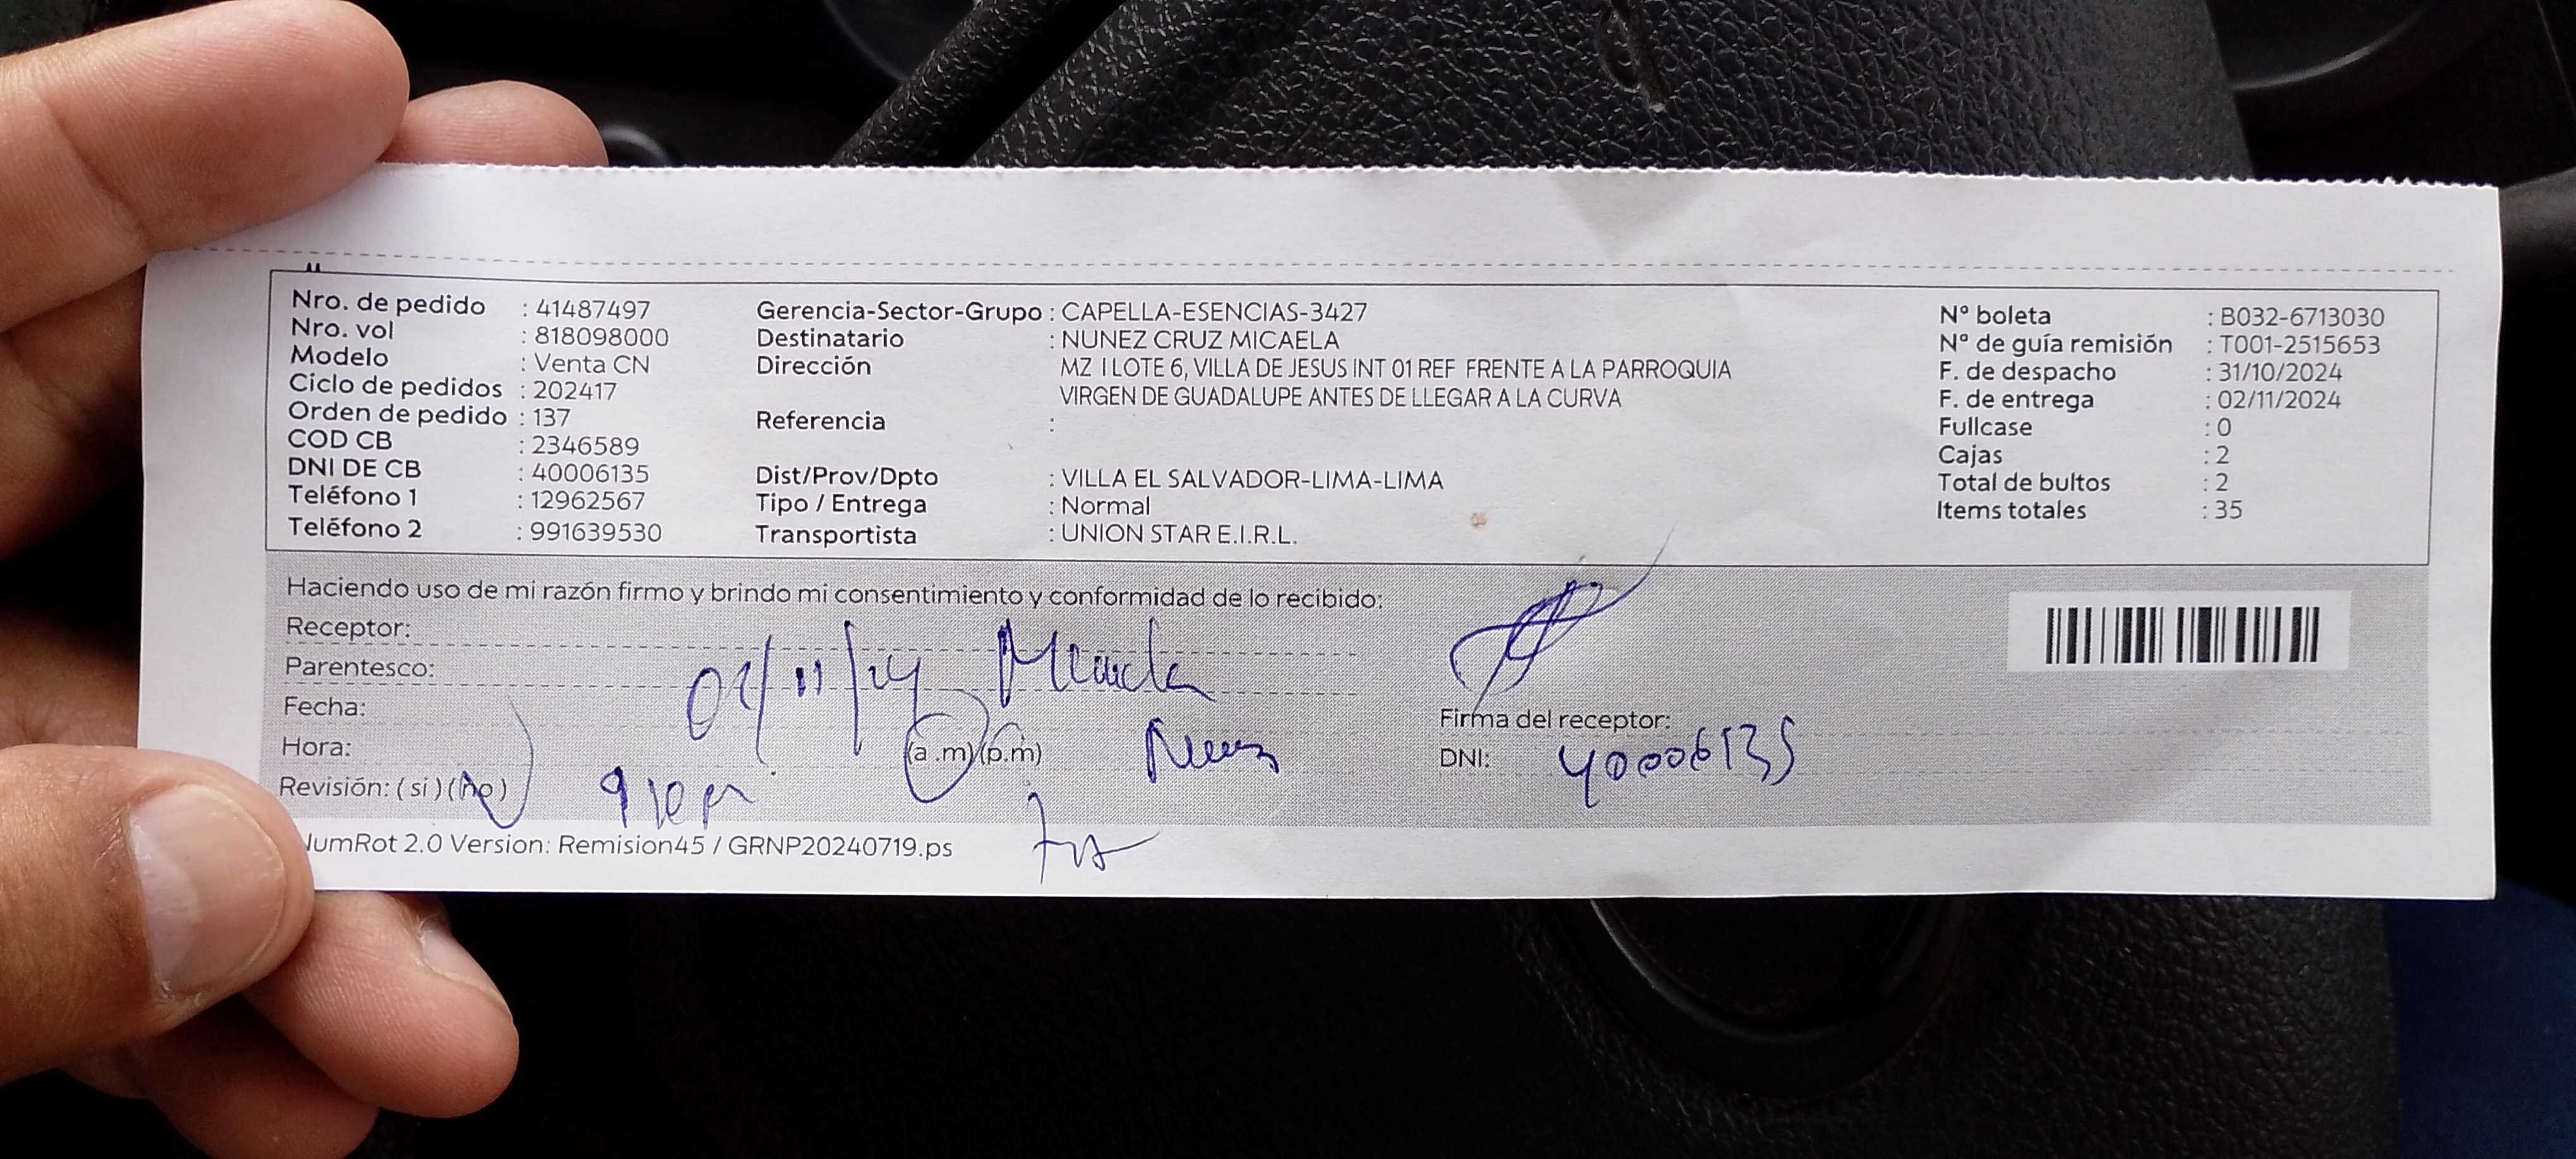 Nro. de pedido : 41487497
Nro. vol : 818098000
Modelo : Venta CN
Ciclo de pedidos : 202417
Orden de pedido : 137
COD CB : 2346589
DNI DE CB : 40006135
Teléfono 1 : 12962567
Teléfono 2 : 991639530
Gerencia-Sector-Grupo : CAPELLA-ESENCIAS-3427
Destinatario : NUNEZ CRUZ MICAELA
Dirección MZ I LOTE 6, VILLA DE JESUS INT 01 REF FRENTE A LA PARROQUIA
VIRGEN DE GUADALUPE ANTES DE LLEGAR A LA CURVA
Referencia :
Dist/Prov/Dpto : VILLA EL SALVADOR-LIMA-LIMA
Tipo / Entrega : Normal
Transportista : UNION STAR E.I.R.L.
Nº boleta : B032-6713030
Nº de guía remisión : T001-2515653
F. de despacho : 31/10/2024
F. de entrega : 02/11/2024
Fullcase : 0
Cajas : 2
Total de bultos : 2
Items totales : 35
Haciendo uso de mi razón firmo y brindo mi consentimiento y conformidad de lo recibido:
Receptor:
Parentesco:
Fecha: /11/24
Hora: (a.m) (p.m)
Revisión: (si) (no)
Firma del receptor:
DNI: 40006135
umRot 2.0 Version: Remision45 / GRNP20240719.ps